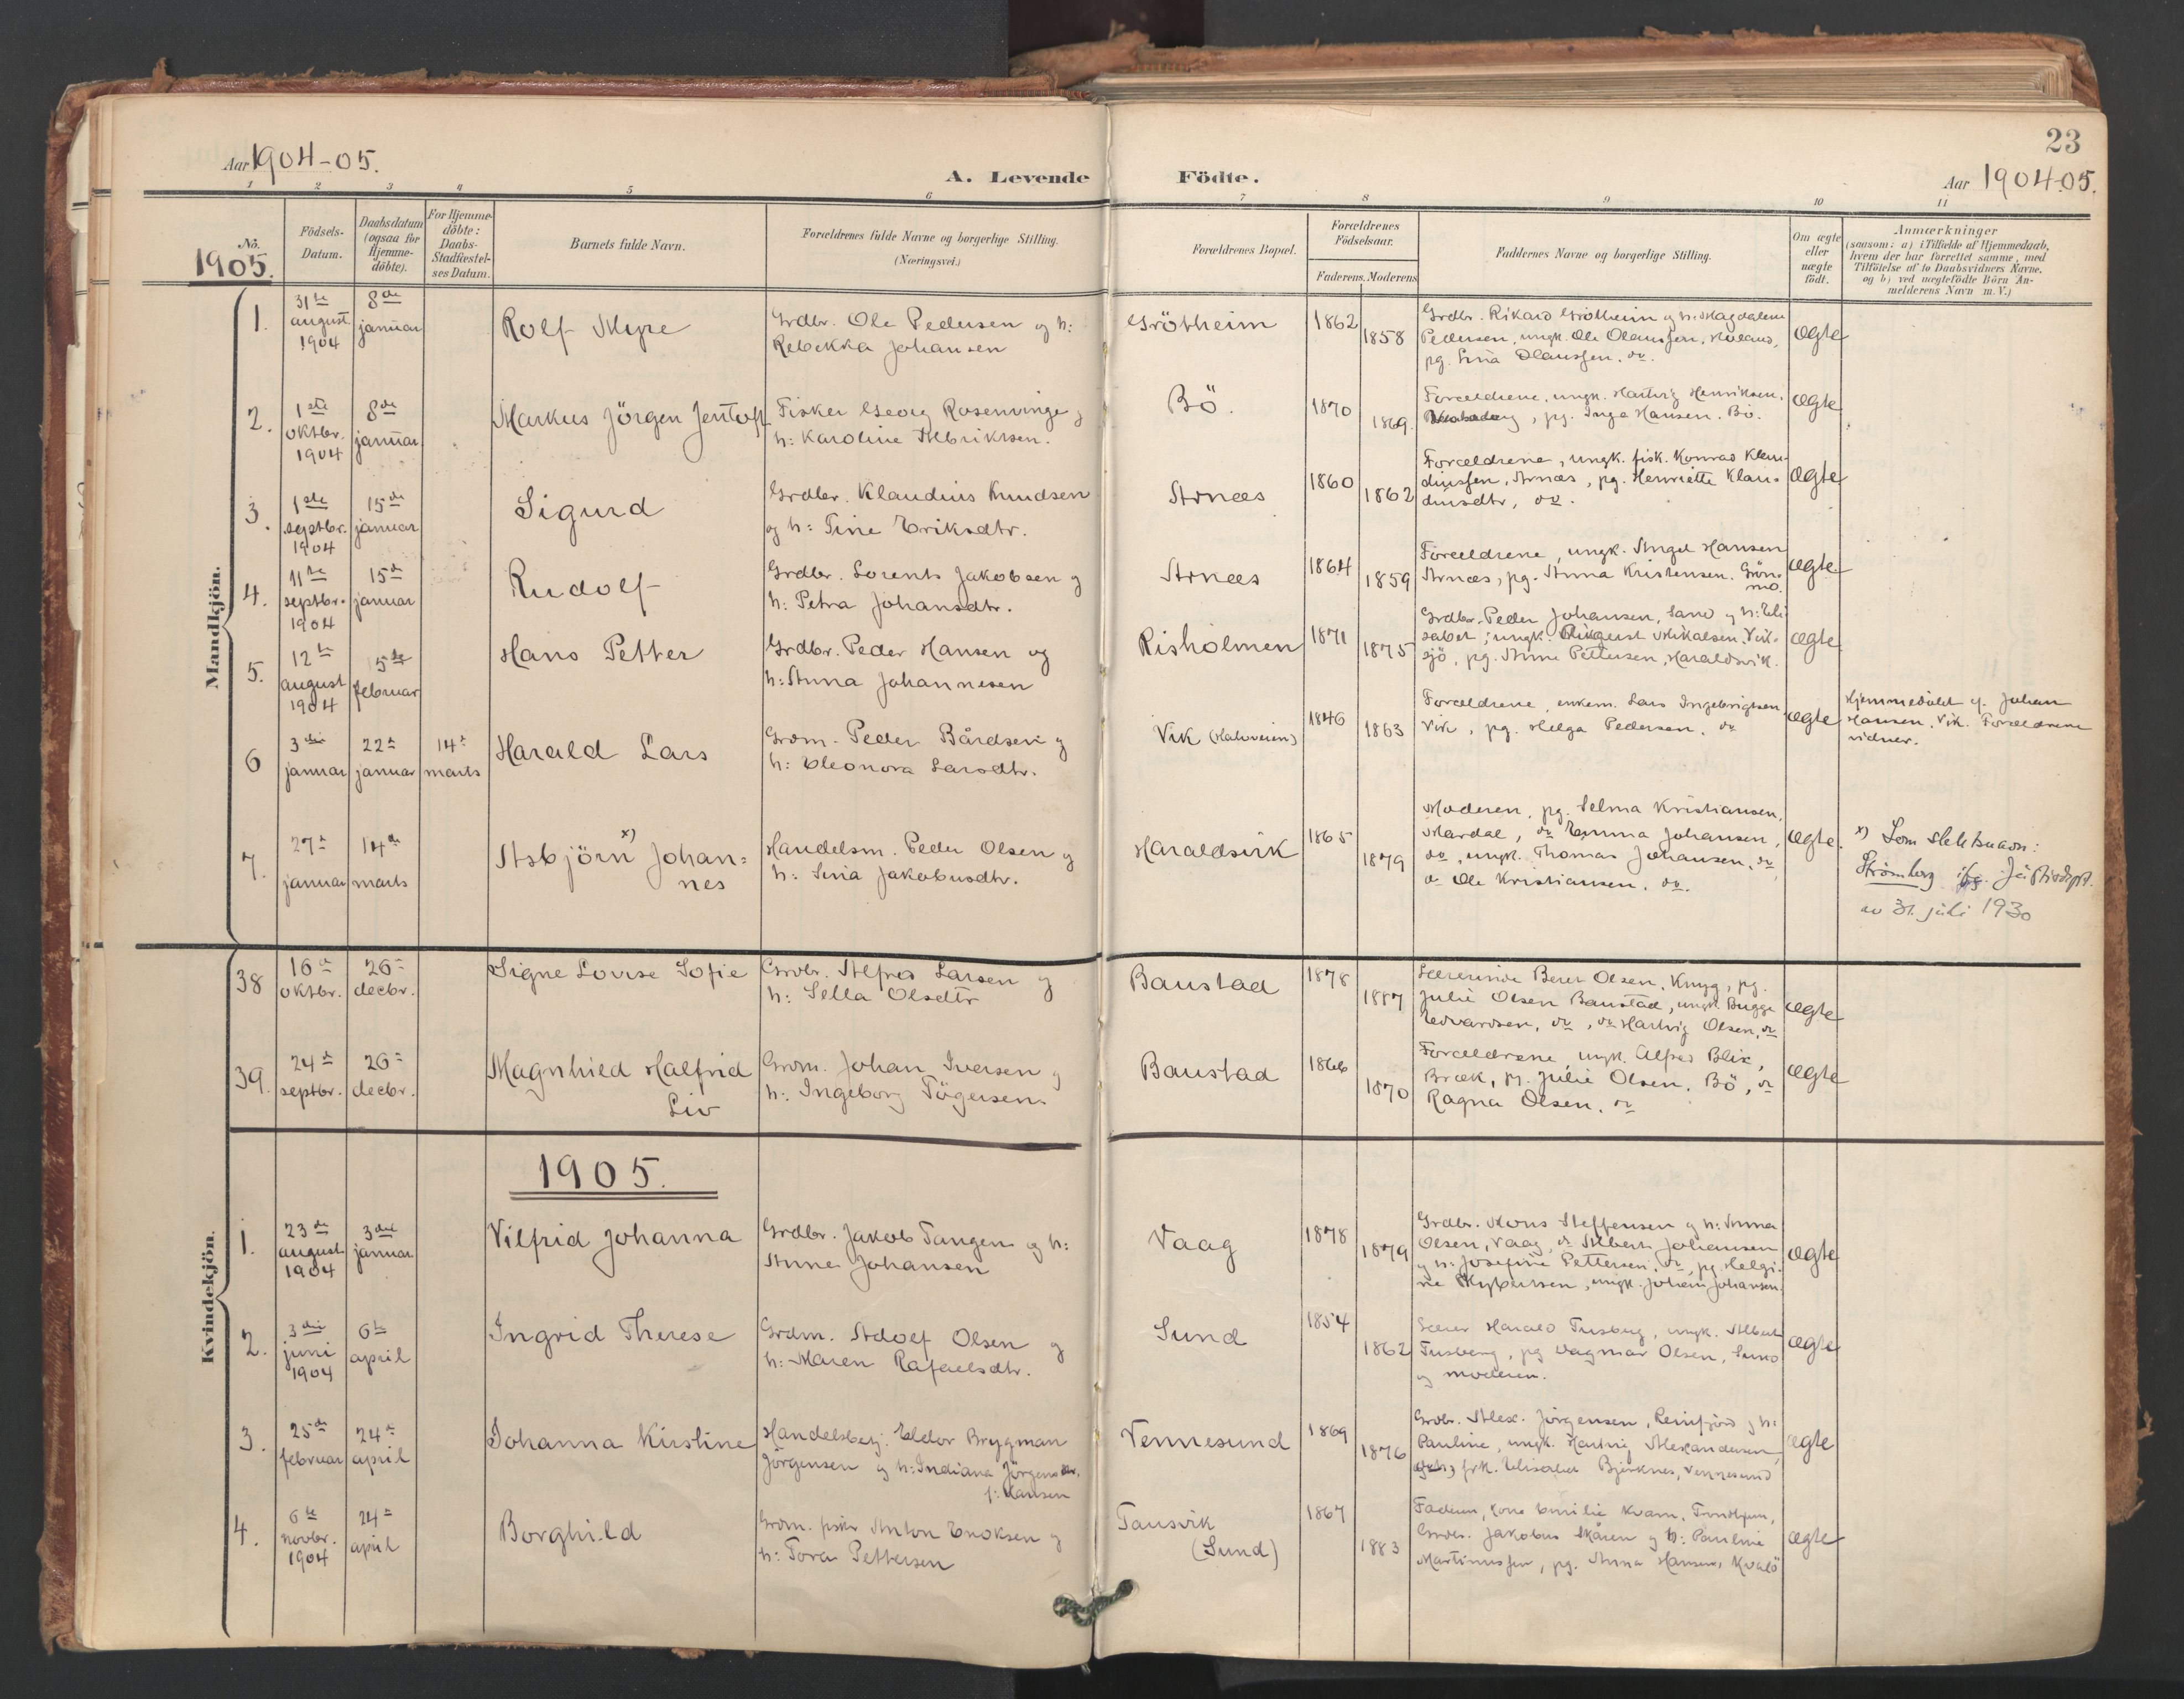 23
Aar 1904-05.
A. Levende Födte.
Aar 1904-05.
1 2 3 4 5 6 7 8 9 10 11
No.
Födsels-
Datum.
Daabsdatum
(ogsaa for
Hjemme-
döbte).
For Hjemme-
döbte:
Daabs-
Stadfæstel-
ses Datum.
Barnets fulde Navn.
Forældrenes fulde Navne og borgerlige Stilling.
(Næringsvei.)
Forældrenes Bopæl.
Forældrenes
Födselsaar.
Faderens. Moderens
Faddernes Navne og borgerlige Stilling.
Om ægte
eller
uægte
födt.
Anmærkninger
(saasom: a) i Tilfælde af Hjemmedaab,
hvem der har forrettet samme, med
Tilföielse af to Daabsvidners Navne,
og b) ved uægtefödte Börn An-
melderens Navn m. V.)
1905.
Mandkjön.
1.
31te
august
1904
8de
januar
Rolf Myre
Grdbr. Ole Pedersen og h:
Rebekka Johansen
Grötheim
1862
1858
Grdbr. Rikard Grötheim og h: Magdalena
Pedersen, ungk. Ole Olaussen,
pg. Lina Olaussen. do.
ægte
2.
1ste
oktbr.
1904
8de
januar
Markus Jörgen Jentoft
Fisker Georg Rosenvinge og
h: Karoline Albriktsen.
Bö.
1870
1869.
Forældrene, ungk. Hartvig Henriksen,
pg. Inga Hansen. Bö.
ægte
3.
1ste
septbr.
1904
15de
januar
Sigurd
Grdbr. Klaudius Knudsen
og h: Tine Eriksdtr.
Arnæs
1860
1862
Forældrene, ungk. fisk. Konrad Klau-
diussen, Arnæs, pg. Henriette Klau-
diusdtr, do.
ægte
4.
11te
septbr.
1904
15de
januar
Rudolf
Grdbr. Lorents Jakobsen og
h: Petra Johansdtr.
Arnæs
1864
1859
Forældrene, ungk. Angel Hansen
Arnæs, pg. Anna Kristensen. Grön-
mo.
ægte
5.
12te
august
1904
5te
februar
Hans Petter
Grdbr. Peder Hansen og
h: Anna Johannesen
Risholmen
1871
1875
Grdbr. Peder Johansen, Sand og h: Eli-
sabet, ungk. Mikalsen, Vik-
sjö, pg. Anne Pettersen, Haraldsvik.
ægte
6
3die
januar
22de
januar
14de
marts
Harald Lars
Grdm. Peder Bårdsen og
h: Eleonora Larsdtr.
Vik
1846
1863
Forældrene, enkem. Lars Ingebrigtsen
Vik, pg. Helga Pedersen, do
ægte
Hjemmedöbt af Johan
Hansen, Vik. Forældrene
vidner.
7.
27de
januar
14de
marts
Asbjörn x) Johan=
nes
Handelsm. Peder Olsen og
h: Lina Jakobusdtr.
Haraldsvik
1865
1879
Moderen, pg. Selma Kristiansen,
Mardal, do Emma Johansen,
do, ungk. Thomas Johansen, do,
do Ole Kristiansen. do.
ægte.
x) Som slektsnavn:
Strömberg ifg. Justisdept.
av 31. juli 1930
Kvindekjön.
38
16de
oktbr.
26de
decbr.
Signe Lovise Sofie
Grdbr. Alfred Larsen og
h: Sella Olsdtr
Baustad
1878
1887
Lærerinde Beret Olsen, Knyg, pg.
Julie Olsen Baustad, ungk. Bugge
Edvardsen, do, do Hartvig Olsen, do
ægte
39.
24de
septbr.
26de
decbr.
Magnhild Halfrid
Liv
Grdm. Johan Iversen og
h: Ingeborg Tögersen
Baustad
1866
1870
Forældrene, ungk. Alfred Blix,
Bræk, pg. Julie Olsen, Bö, do
Ragna Olsen. do
ægte
1905.
1.
23de
august
1904
3die
januar
Vilfrid Johanna
Grdbr. Jakob Tangen og h:
Anne Johansen
Vaag
1878
1879
Grdbr. Mons Steffensen og h: Anna
Olsen, Vaag, do Albert Johansen
og h: Josefine Pettersen, do, pg. Helgi-
ne, ungk. Johan Johansen.
ægte
2.
3die
juni
1904
6te
april
Ingrid Therese
Grdm. Adolf Olsen og
h: Maren Rafaelsdtr.
Sund
1854
1862
Lærer Harald Tusberg, ungk. Albert
Tusberg, pg Dagmar Olsen, Sund
og moderen.
ægte
3.
25de
februar
24de
april
Johanna Kirstine
Handelsbetj. Eldor Brygman
Jörgensen og h: Indiana Jörgensdtr.
f: Hansen
Vennesund
1869
1876
Grdbr. Alex. Jörgensen, Reinfjord og h:
Pauline, ungk. Hartvig Alexandersen,
frk. Elisabet Bjerknes, Vennesund
ægte
4.
6te
novbr.
1904
24de
april
Borghild
Grdm. fisk. Anton Enoksen og
h: Tora Pettersen
Tausvik
(Sund)
1867
1883
Faderen, kone Emilie Kvam, Trondhjem,
Grdbr. Jakobus Skåren og h: Pauline
Martinussen, pg. Anna Hansen, Kvalö
ægte